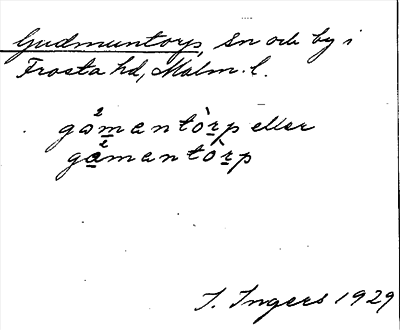 Gudmuntorp, sn och by i
Frosta hd, Malm. l.
go²mantòrp eller
gæ²mantòrp
I. Ingers 1929